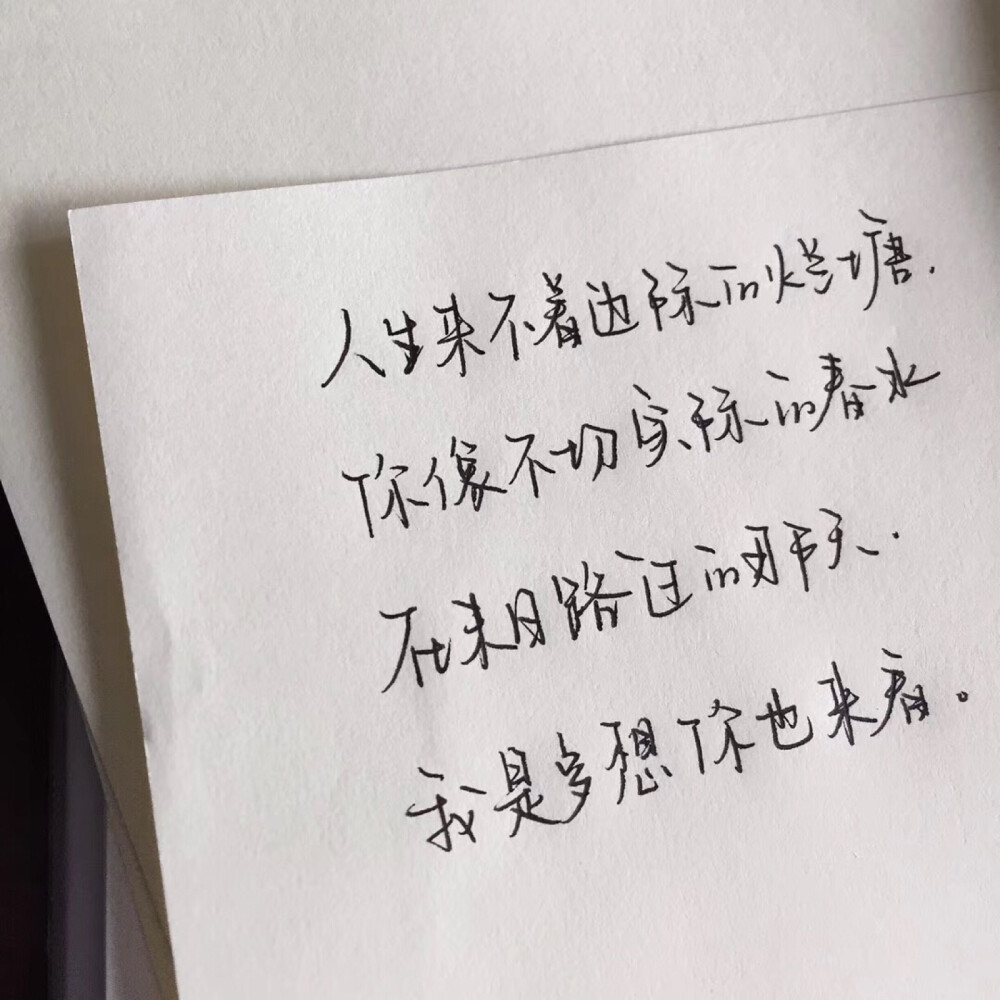 人生来不着边际的烂塘,
你像不切实际的春水
在来日路过的那天.
我是多想你也来看。